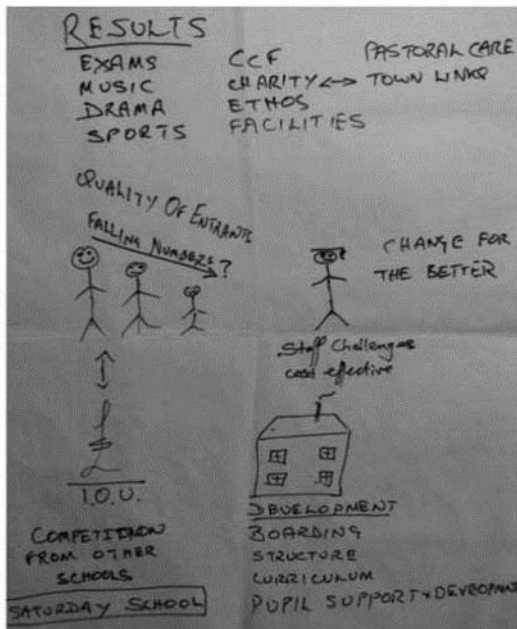 RESULTS
EXAMS
MUSIC
DRAMA
SPORTS
CCF
CHARITY ↔ TOWN LINKS
ETHOS
FACILITIES
PASTORAL CARE
QUALITY OF ENTRANTS
FALLING NUMBERS?
CHANGE FOR
THE BETTER
Staff Challenges
cost effective
£
I.O.U.
COMPETITION
FROM OTHER
SCHOOLS
SATURDAY SCHOOL
DEVELOPMENT
BOARDING
STRUCTURE
CURRICULUM
PUPIL SUPPORT + DEVELOPMENT